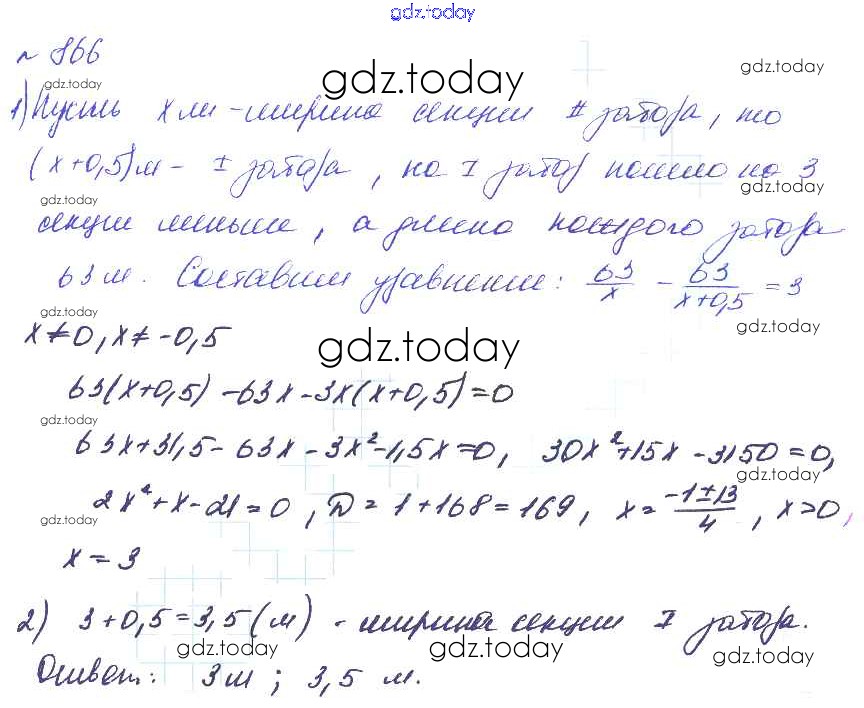 gdz.today
№ 866
gdz.today gdz.today gdz.today
1) Пусть x м - ширина секции II забора, то
(x+0,5) м - I забора, на I забор пошло на 3
gdz.today gdz.today
секции меньше, а длина каждого забора
63 м. Составим уравнение: 63/x - 63/(x+0,5) = 3
gdz.today gdz.today
x≠0, x≠-0,5
gdz.today
63(x+0,5) - 63x - 3x(x+0,5) = 0
gdz.today
63x+31,5 - 63x - 3x² - 1,5x = 0, 30x² + 15x - 3150 = 0,
gdz.today
2x² + x - 21 = 0, D = 1 + 168 = 169, x = (-1±13)/4, x>0,
gdz.today
x = 3
2) 3 + 0,5 = 3,5 (м) - ширина секции I забора.
gdz.today gdz.today gdz.today
Ответ: 3 м; 3,5 м.